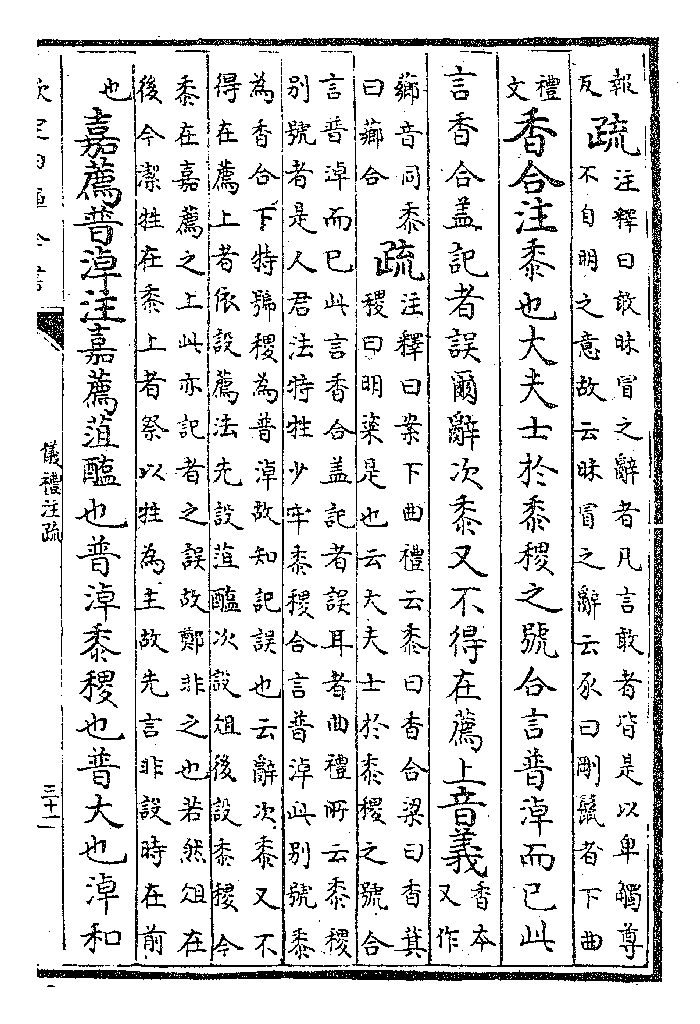 報
反
疏
注釋曰敢昧冒之辭者凡言敢者皆是以卑觸尊
不自明之意故云昧冒之辭云豕曰剛鬛者下曲
禮
文
香合注黍也大夫士於黍稷之號合言普淖而已此
言香合蓋記者誤爾辭次黍又不得在薦上音義
香本
又作
薌音同黍
曰薌合
疏
注釋曰案下曲禮云黍曰香合粱曰香萁
稷曰明粢是也云大夫士於黍稷之號合
言普淖而已此言香合蓋記者誤耳者曲禮所云黍稷
别號者是人君法特牲少牢黍稷合言普淖此别號黍
為香合下特號稷為普淖故知記誤也云辭次黍又不
得在薦上者依設薦法先設菹醢次設俎後設黍稷今
黍在嘉薦之上此亦記者之誤故鄭非之也若然俎在
後今潔牲在黍上者祭以牲為主故先言非設時在前
也
嘉薦普淖注嘉薦菹醢也普淖黍稷也普大也淖和
欽定四庫全書
儀禮注疏
三十二